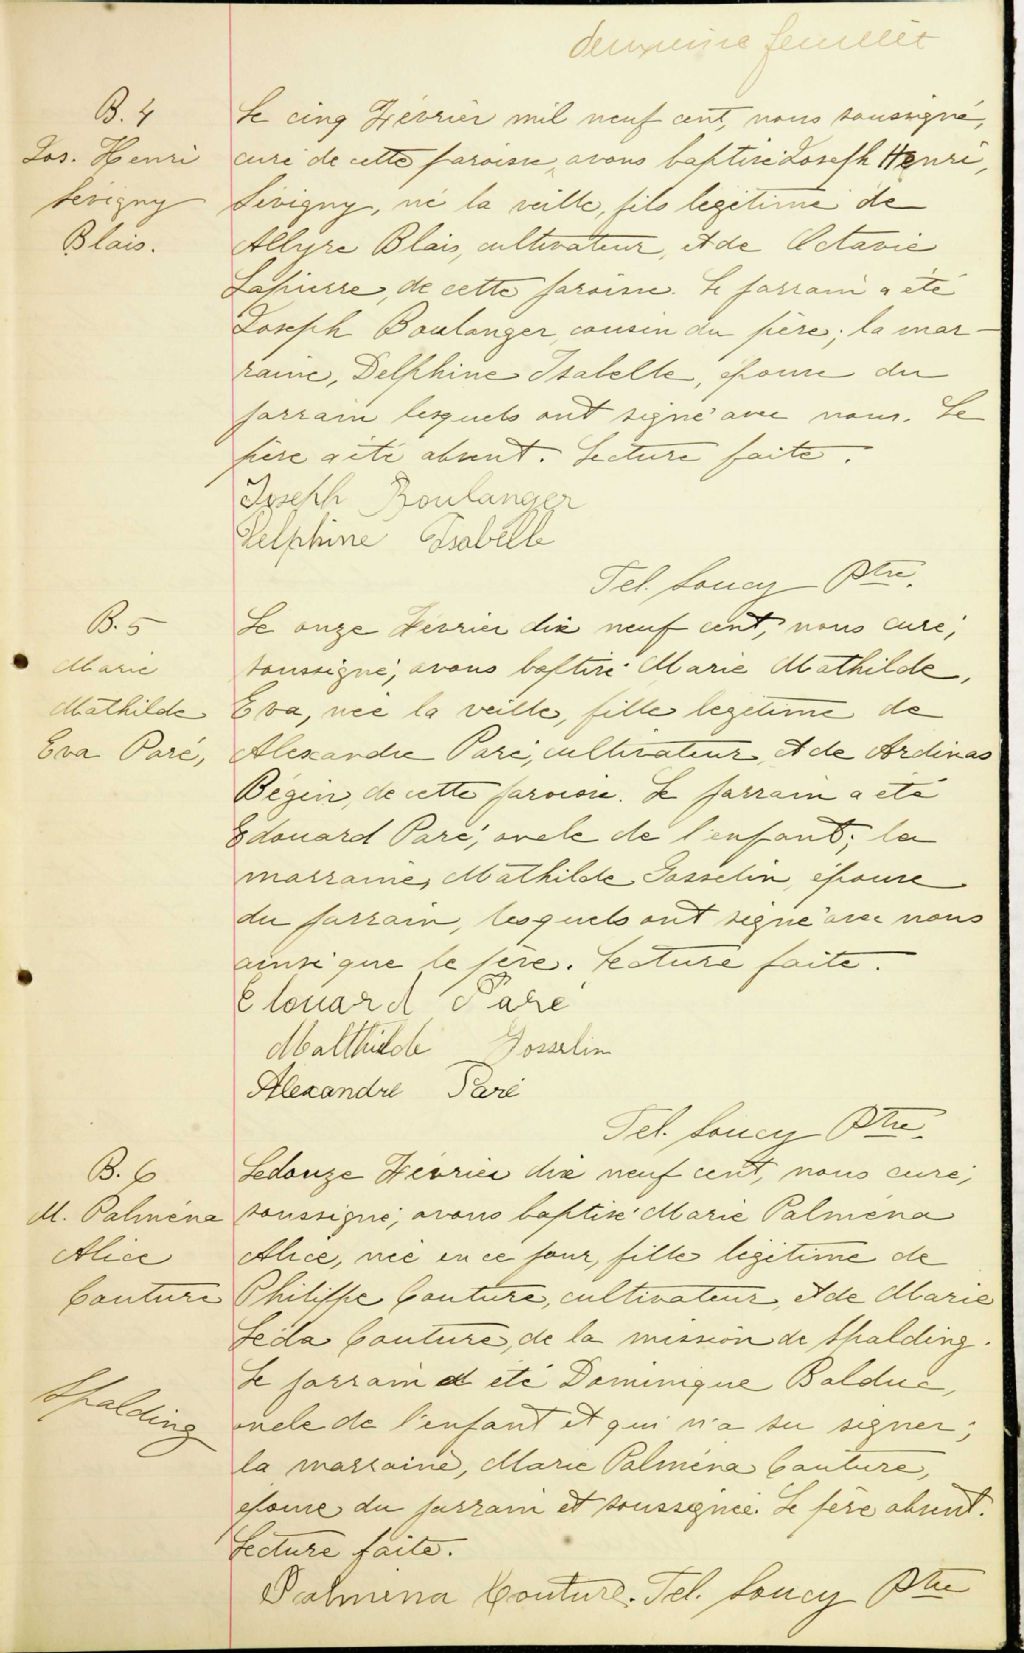 deuxième feuillet
B. 4
Jos. Henri
Sévigny
Blais.
Le cinq Février mil neuf cent, nous soussigné,
curé de cette paroisse, avons baptisé Joseph Henri,
Sévigny, né la veille, fils légitime de
Allyre Blais, cultivateur, et de Octavie
Lapierre, de cette paroisse. Le parrain a été
Joseph Boulanger, cousin du père; la mar-
raine, Delphine Isabelle, épouse du
parrain lesquels ont signé avec nous. Le
père a été absent. Lecture faite.
Joseph Boulanger
Delphine Isabelle
Tel. Soucy Ptre.
B. 5
Marie
Mathilde
Eva Paré,
Le onze Février dix neuf cent, nous curé,
soussigné, avons baptisé Marie Mathilde,
Eva, née la veille, fille légitime de
Alexandre Paré, cultivateur, et de Ardinas
Bégin, de cette paroisse. Le parrain a été
Edouard Paré, oncle de l'enfant; la
marraine, Mathilde Gosselin, épouse
du parrain, lesquels ont signé avec nous
ainsi que le père. Lecture faite.
Edouard Paré
Malthilde Gosselin
Alexandre Paré
Tel. Soucy Ptre.
B. 6
M. Palména
Alice
Couture
Spalding
Le douze Février dix neuf cent, nous curé,
soussigné, avons baptisé Marie Palména
Alice, née en ce jour, fille légitime de
Philippe Couture, cultivateur, et de Marie
Léda Couture, de la mission de Spalding.
Le parrain a été Dominique Balduc,
oncle de l'enfant et qui n'a su signer;
la marraine, Marie Palména Couture,
épouse du parrain et soussignée. Le père absent.
Lecture faite.
Palmina Couture. Tel. Soucy Ptre